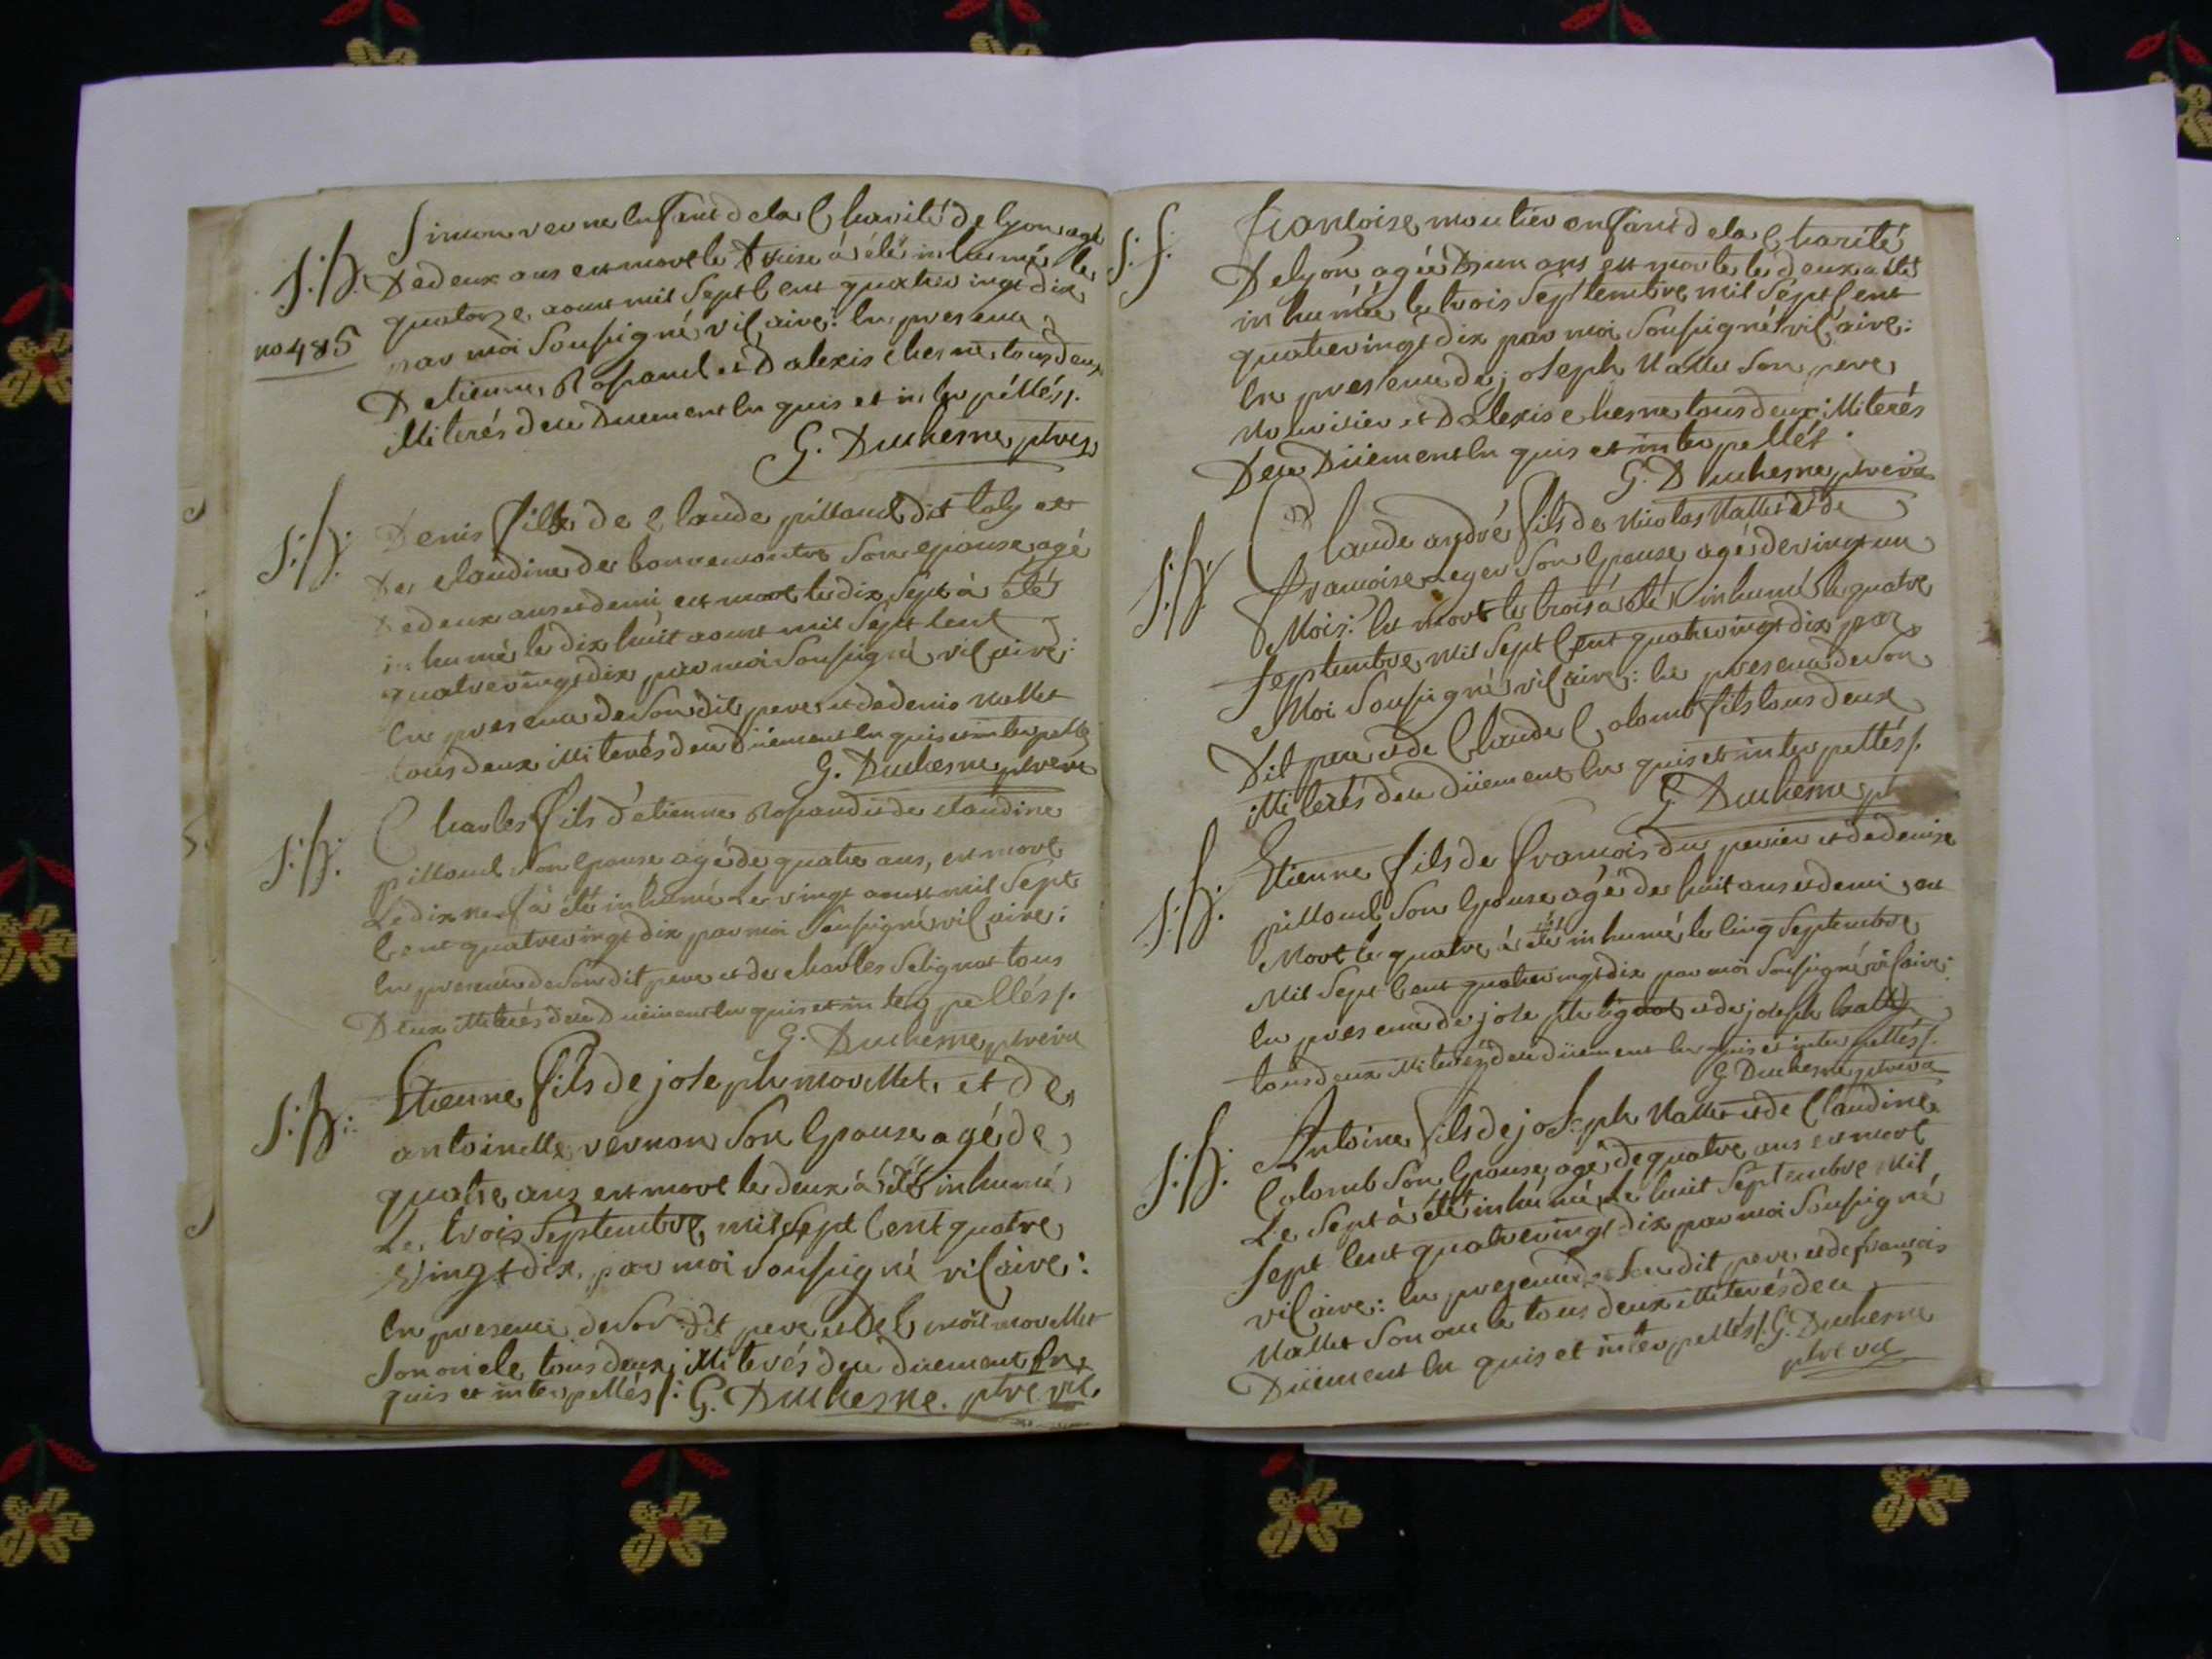 S: h. Simon verne Enfant de la Charité de lyon agé
De deux ans est mort le treise à été inhumé le
quatorze aoust mil Sept Cent quatrevingt dix
no 485 par moi Soussigné vicaire: En presence
D'etienne Rosand et D'alexis chesne tous deux
illiterés de ce Duement Enquis et interpéllés /.
G. Duchesne ptre
S: h: Denis fils de Claude pilloud dit toly et
De claudine de bonremontre Son epouse agé
de deux ans et demi est mort le dix Sept à été
inhumé le dix huit aoust mil Sept Cent
quatrevingt dix par moi Soussigné vicaire:
En presence de Son dit pere et de denis Mallet
tous deux illiterés de ce Düement Enquis et interpellés
G. Duchesne ptre vic
S: h: Charles fils d'etienne Rosand et de claudine
pilloud Son Epouse agé de quatre ans, est mort
Le dix neuf à été inhumé Le vingt aoust mil Sept
Cent quatrevingt dix par moi Soussigné vicaire:
En presence de Son dit pere et de charles Selignat tous
Deux illiterés de ce Duement Enquis et interpellés /.
G. Duchesne ptre vic
S: h: Etienne fils de joseph morillet, et de
antoinette vernon Son Epouse agé de
quatre ans est mort le deux à été inhumé
Le trois Septembre, mil Sept Cent quatre
Vingt dix, par moi Soussigné vicaire:
En presence de Son dit pere et de morillet
Son oncle tous deux illiterés de ce duement En
quis et interpellés /: G. Duchesne. ptre vic.
S: f: francoise moutier enfant de la Charité
De lyon agée D'un ans est morte le deux a été
inhumée le trois Septembre mil Sept Cent
quatrevingt dix par moi Soussigné vicaire:
En presence de joseph Mallet Son pere
Nourisier et D'alexis chesne tous deux illiterés
De ce Düement Enquis et interpellés.
G. Duchesne ptre vic
S: h: Claude andré fils de Nicolas Mallet et de
francoise Leger Son Epouse agé de vingt un
Mois: Est mort le trois à été inhumé le quatre
Septembre mil Sept Cent quatrevingt dix par
Moi Soussigné vicaire: En presence de Son
Dit pere et de Claude Colomb fils tous deux
illiterés de ce Düement Enquis et interpellés /.
G. Duchesne ptre
S: h: Etienne fils de francois du perier et de denise
pilloud Son Epouse agé de huit ans et demi est
Mort le quatre à été inhumé le Cinq Septembre
Mil Sept Cent quatrevingt dix par moi Soussigné vicaire:
En presence de joseph et de joseph
tous deux illiterés de ce düement Enquis et interpellés /.
G. Duchesne ptre vic
S: h: Antoine fils de joseph Mallet et de Claudine
Colomb Son Epouse, agé de quatre ans est mort
Le Sept à été inhumé Le huit Septembre Mil
Sept Cent quatrevingt dix par moi Soussigné
vicaire: En presence de Son dit pere et de francois
Mallet Son oncle tous deux illiterés de ce
Düement Enquis et interpellés /. G. Duchesne
ptre vic